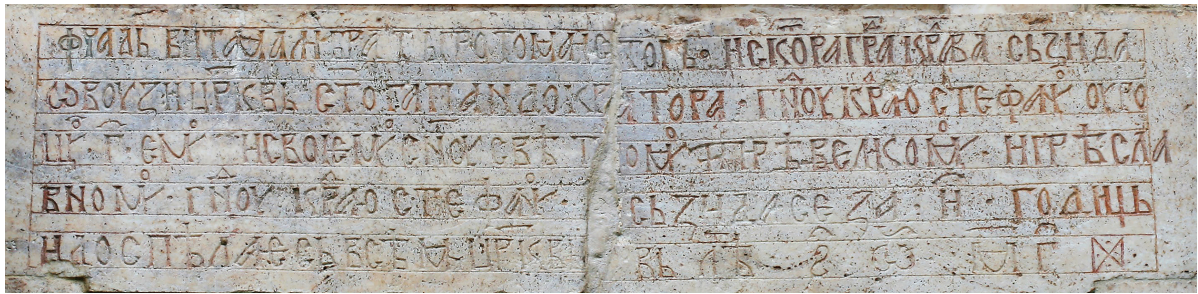 фрадь вита мали братъ протомаисторь · ис котора града крлева сьзида
ѡвоузи црковь стого пандократора · гноу кралю стефанꙋ оуро
цꙋ · г · емꙋ и своѥмꙋ сноу свѣтломꙋ и прѣвеликомꙋ и прѣсла
вномꙋ · гноу кралю стефанꙋ · сьзида се за · и · годищь
и доспѣла есь всѣма црковь вь лѣ ҂ ѕ ѡ м г